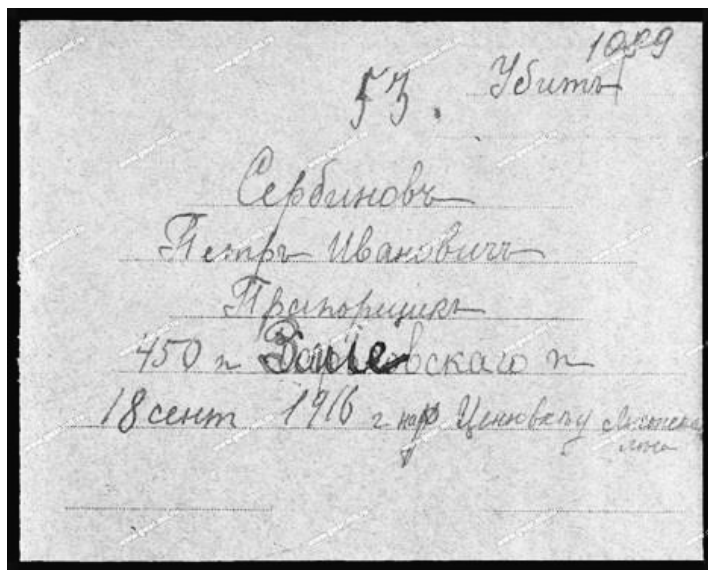 1039
53. Убитъ
Сербиновъ
Петръ Ивановичъ
Прапорщикъ
450 п Змiевскаго п
18 сент 1916 г на р Ценювку